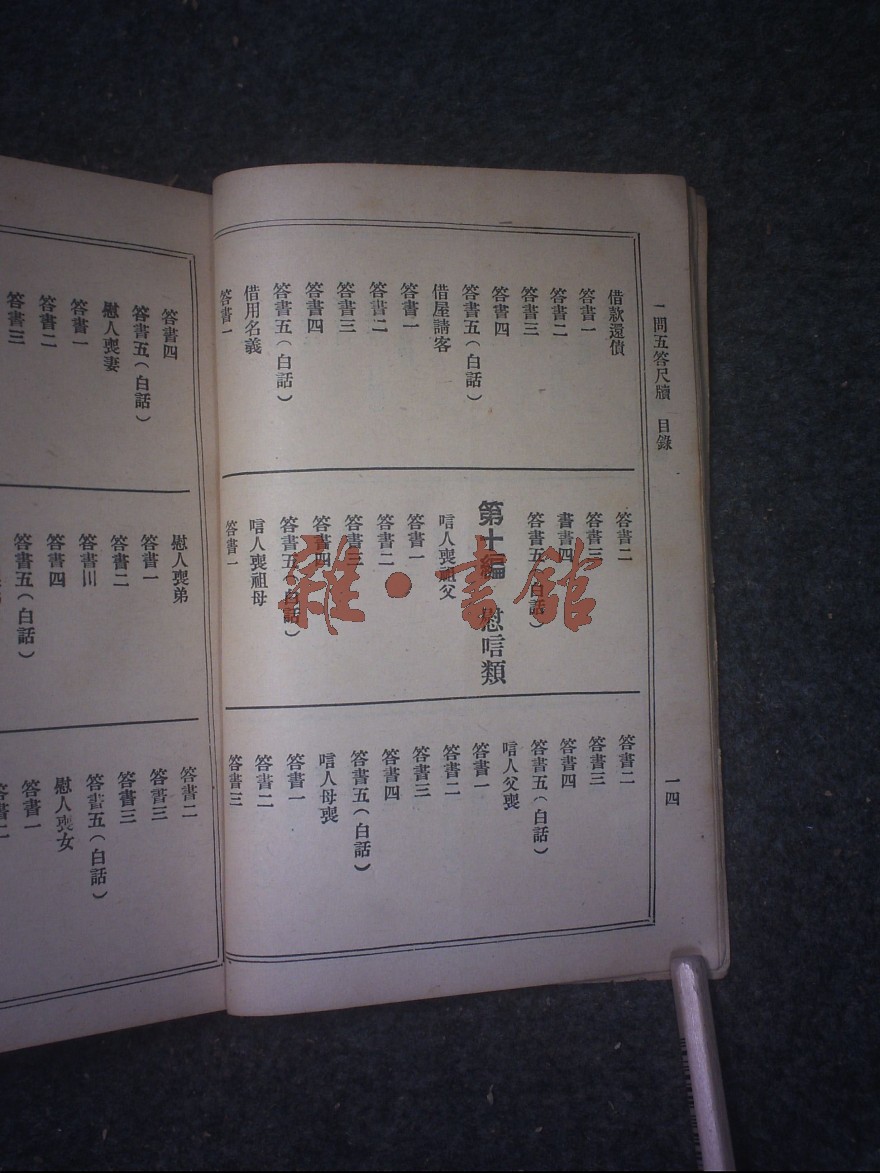 一問五答尺牘　目錄
一四
借款還債
答書一
答書二
答書三
答書四
答書五（白話）
借屋請客
答書一
答書二
答書三
答書四
答書五（白話）
借用名義
答書一
答書二
答書三
書書四
答書五（白話）
第十編　慰唁類
唁人喪祖父
答書一
答書二
答書三
答書四
答書五（白話）
唁人喪祖母
答書一
答書二
答書三
答書四
答書五（白話）
唁人父喪
答書一
答書二
答書三
答書四
答書五（白話）
唁人母喪
答書一
答書二
答書三
答書四
答書五（白話）
慰人喪妻
答書一
答書二
答書三
慰人喪弟
答書一
答書二
答書川
答書四
答書五（白話）
答書二
答書三
答書三
答書五（白話）
慰人喪女
答書一
雜·書館